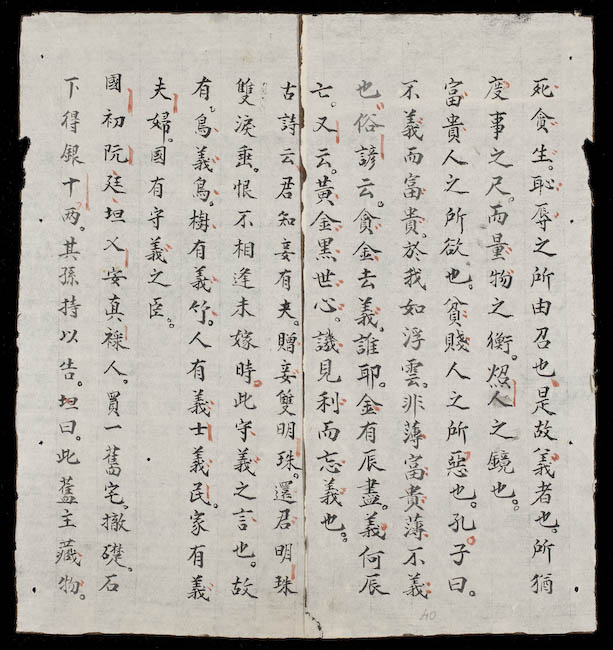 死貪生。恥辱之所由召也。是故義者也。所猶
度事之尺。而量物之衡。炤人之鏡也。
富貴人之所欲也。貧賤人之所惡也。孔子曰。
不義而富貴。於我如浮雲。非薄富貴薄不義
也。俗諺云。貪金去義。誰耶。金有辰盡。義何辰
亡。又云。黃金黑世心。譏見利而忘義也。
古詩云君知妾有夫。贈妾雙明珠。還君明珠
雙淚垂。恨不相逢未嫁時。此守義之言也。故
有鳥義鳥。樹有義竹。人有義士義民。家有義
夫婦。國有守義之臣。
國初阮廷坦乂安真祿人。買一舊宅。撤礎。石
下得銀十两。其孫持以告。坦曰。此舊主藏物。
40